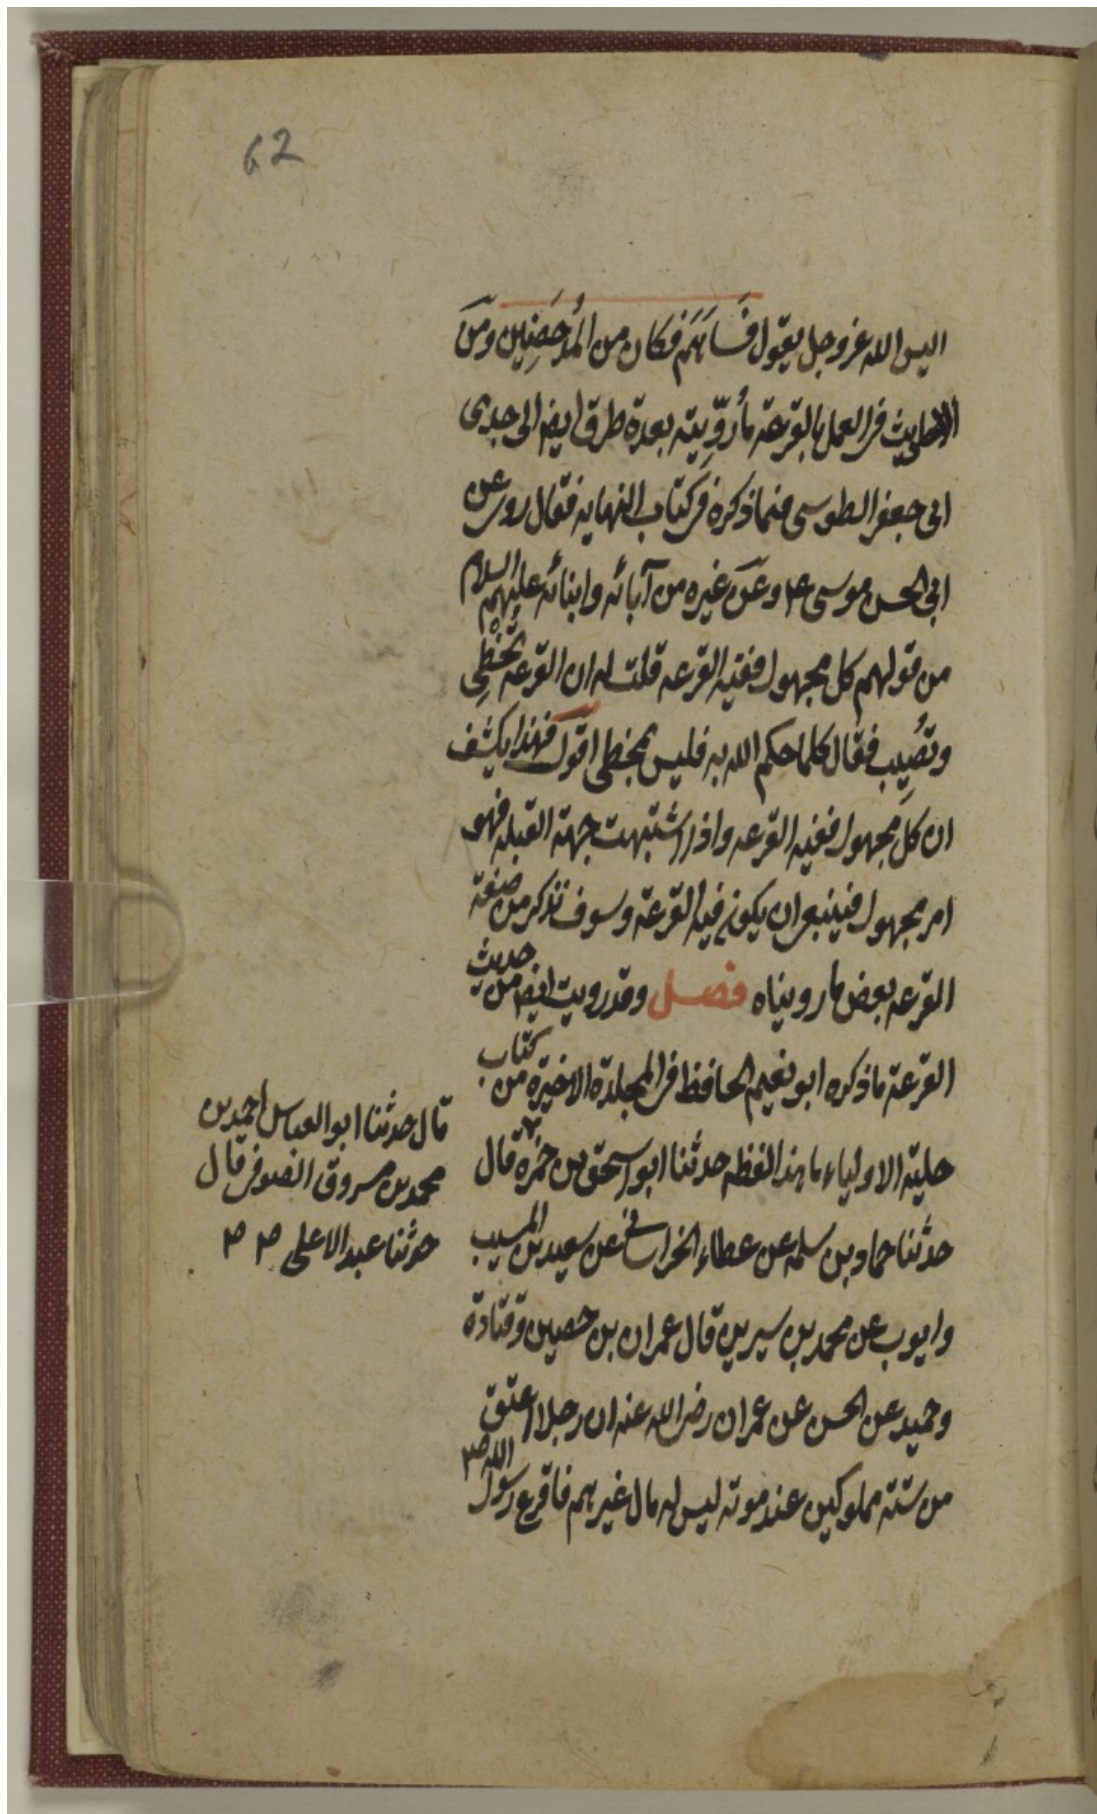 62
اليس الله عز وجل يقول فَسَاهَمَ فكان من المُدحَضِين ومن
الاحاديث فى العمل بالقرعة مأ روّيته بعدة طرق ايضا الى جدى
ابى جعفر الطوسى فيما ذكره فى كتاب النهايه فقال روى عن
ابى الحسن موسى ع وعن غيره من آبائه وابنائه عليهم السلام
من قولهم كل مجهول ففيه القرعه قلت له ان القرعه تخْطِى
وتصُيِب فقال كلما حكم الله به فليس بمخطى اقول فهذا يكشف
ان كل مجهول ففيه القرعه واذا اشتبهت جهة القبله فهو
امر مجهول فينبغى ان يكون فيه القرعة وسوف نذكر من صفة
القرعه بعض ما رويناه فصل وقد رويت ايضا من حديث
القرعة ما ذكره ابو نعيم الحافظ فى المجلدة الاخيرة من كتاب
حلية الاولياء ما هذا لفظه حدثنا ابو اسحق بن حمزه قال
حدثنا حماد بن سلمه عن عطاء الخراسانى عن سعيد بن المسيب
وايوب عن محمد بن سيرين قال عمران بن حصين وقتادة
وحميد عن الحسن عن عمران رضى الله عنه ان رجلا اعتق
من ستة مملوكين عند موته ليس له مال غيرهم فاقرع رسول الله ص
قال حدثنا ابو العباس احمد بن
محمد بن مسروق الصوفى قال
حدثنا عبد الاعلى